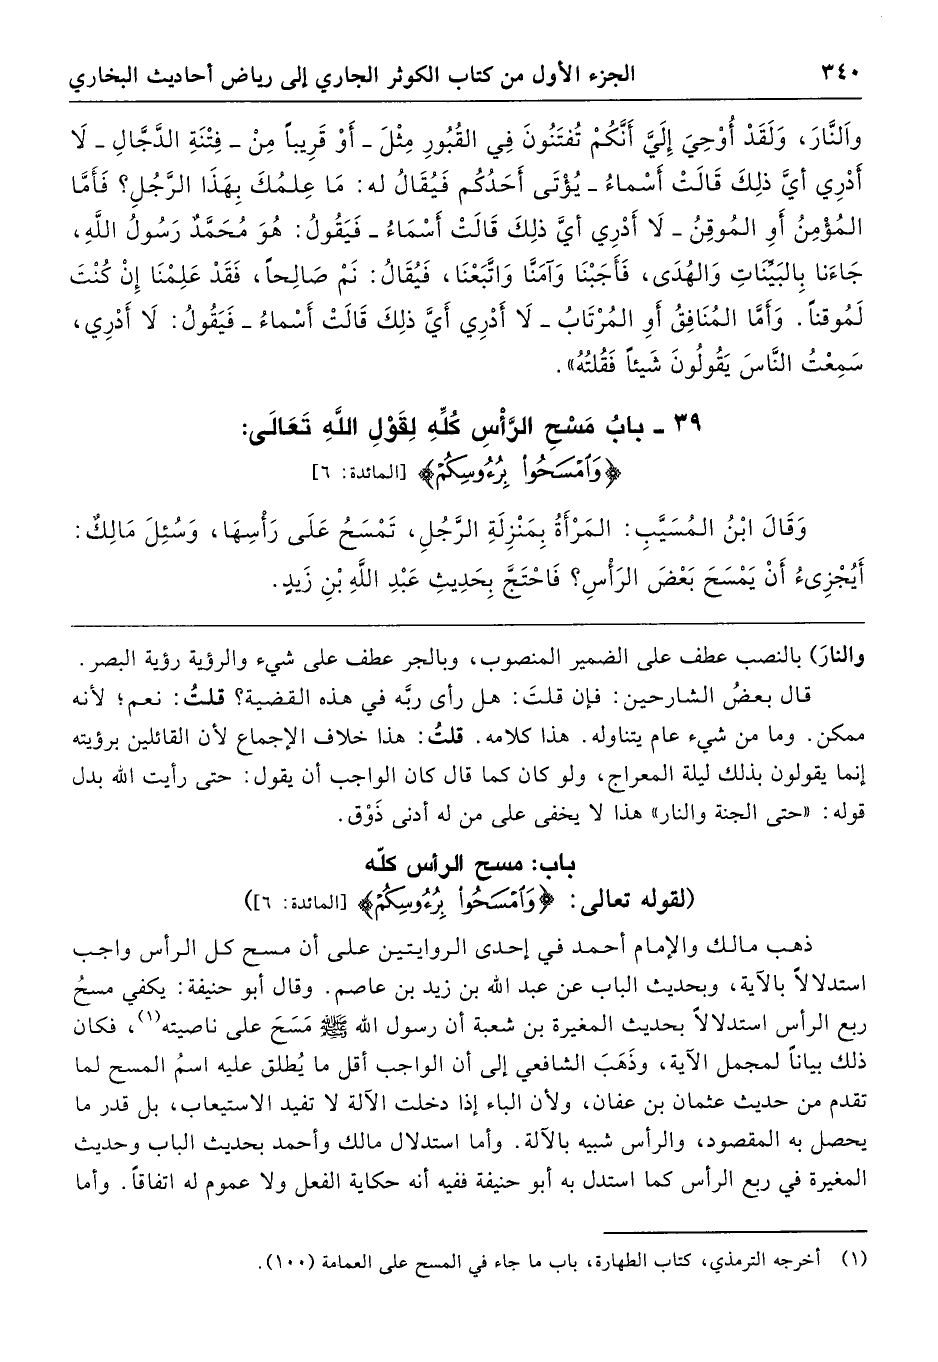 ٣٤٠ الجزء الأول من كتاب الكوثر الجاري إلى رياض أحاديث البخاري
والنَّارَ، وَلَقَدْ أُوْحِيَ إِلَيَّ أَنَّكُمْ تُفتَنُونَ فِي القُبُورِ مِثْلَ ـ أَوْ قَرِيباً مِنْ ـ فِتْنَةِ الدَّجَّالِ ـ لَا
أَدْرِي أيَّ ذلِكَ قَالَتْ أَسْماءُ ـ يُؤْتَى أَحَدُكُم فَيُقَالُ له: مَا عِلمُكَ بِهَذَا الرَّجُلِ؟ فَأَمَّا
المُؤْمِنُ أَوِ المُوقِنُ ـ لَا أَدْرِي أيَّ ذلكَ قَالَتْ أَسْمَاءُ ـ فَيَقُولُ: هُوَ مُحَمَّدٌ رَسُولُ اللَّهِ،
جَاءَنا بِالبَيِّنَاتِ وَالهُدَى، فَأَجَبْنَا وَآمَنَّا وَاتَّبَعْنَا، فَيُقَالُ: نَمْ صَالِحاً، فَقَدْ عَلِمْنَا إِنْ كُنْتَ
لَمُوقناً. وَأَمَّا المُنَافِقُ أَوِ المُرْتَابُ ـ لَا أَدْرِي أَيَّ ذلِكَ قَالَتْ أَسْماءُ ـ فَيَقُولُ: لَا أَدْرِي،
سَمِعْتُ النَّاسَ يَقُولُونَ شَيئاً فَقُلتُهُ».
٣٩ ـ بابُ مَسْحِ الرَّأْسِ كُلِّهِ لِقَوْلِ اللَّهِ تَعَالَى:
﴿وَٱمۡسَحُواْ بِرُءُوسِكُمۡ﴾ [المائدة: ٦]
وَقَالَ ابْنُ المُسَيَّبِ: المَرْأَةُ بِمَنْزِلَةِ الرَّجُلِ، تَمْسَحُ عَلَى رَأْسِهَا، وَسُئِلَ مَالِكٌ:
أَيُجْزِىءُ أَنْ يَمْسَحَ بَعْضَ الرَأْسِ؟ فَاحْتَجَّ بِحَدِيثِ عَبْدِ اللَّهِ بْنِ زَيدٍ.
والنارَ) بالنصب عطف على الضمير المنصوب، وبالجر عطف على شيء والرؤية رؤية البصر.
قال بعضُ الشارحين: فإن قلتَ: هل رأى ربَّه في هذه القضية؟ قلتُ: نعم؛ لأنه
ممكن. وما من شيء عام يتناوله. هذا كلامه. قلتُ: هذا خلاف الإجماع لأن القائلين برؤيته
إنما يقولون بذلك ليلة المعراج، ولو كان كما قال كان الواجب أن يقول: حتى رأيت الله بدل
قوله: «حتى الجنة والنار» هذا لا يخفى على من له أدنى ذَوْق.
باب: مسح الرأس كلّه
(لقوله تعالى: ﴿وَٱمۡسَحُواْ بِرُءُوسِكُمۡ﴾ [المائدة: ٦])
ذهب مالك والإمام أحمد في إحدى الروايتين على أن مسح كل الرأس واجب
استدلالاً بالآية، وبحديث الباب عن عبد الله بن زيد بن عاصم. وقال أبو حنيفة: يكفي مسحُ
ربع الرأس استدلالاً بحديث المغيرة بن شعبة أن رسول الله ﷺ مَسَحَ على ناصيته(١)، فكان
ذلك بياناً لمجمل الآية، وذَهَبَ الشافعي إلى أن الواجب أقل ما يُطلق عليه اسمُ المسح لما
تقدم من حديث عثمان بن عفان، ولأن الباء إذا دخلت الآلة لا تفيد الاستيعاب، بل قدر ما
يحصل به المقصود، والرأس شبيه بالآلة. وأما استدلال مالك وأحمد بحديث الباب وحديث
المغيرة في ربع الرأس كما استدل به أبو حنيفة ففيه أنه حكاية الفعل ولا عموم له اتفاقاً. وأما
(١) أخرجه الترمذي، كتاب الطهارة، باب ما جاء في المسح على العمامة (١٠٠).